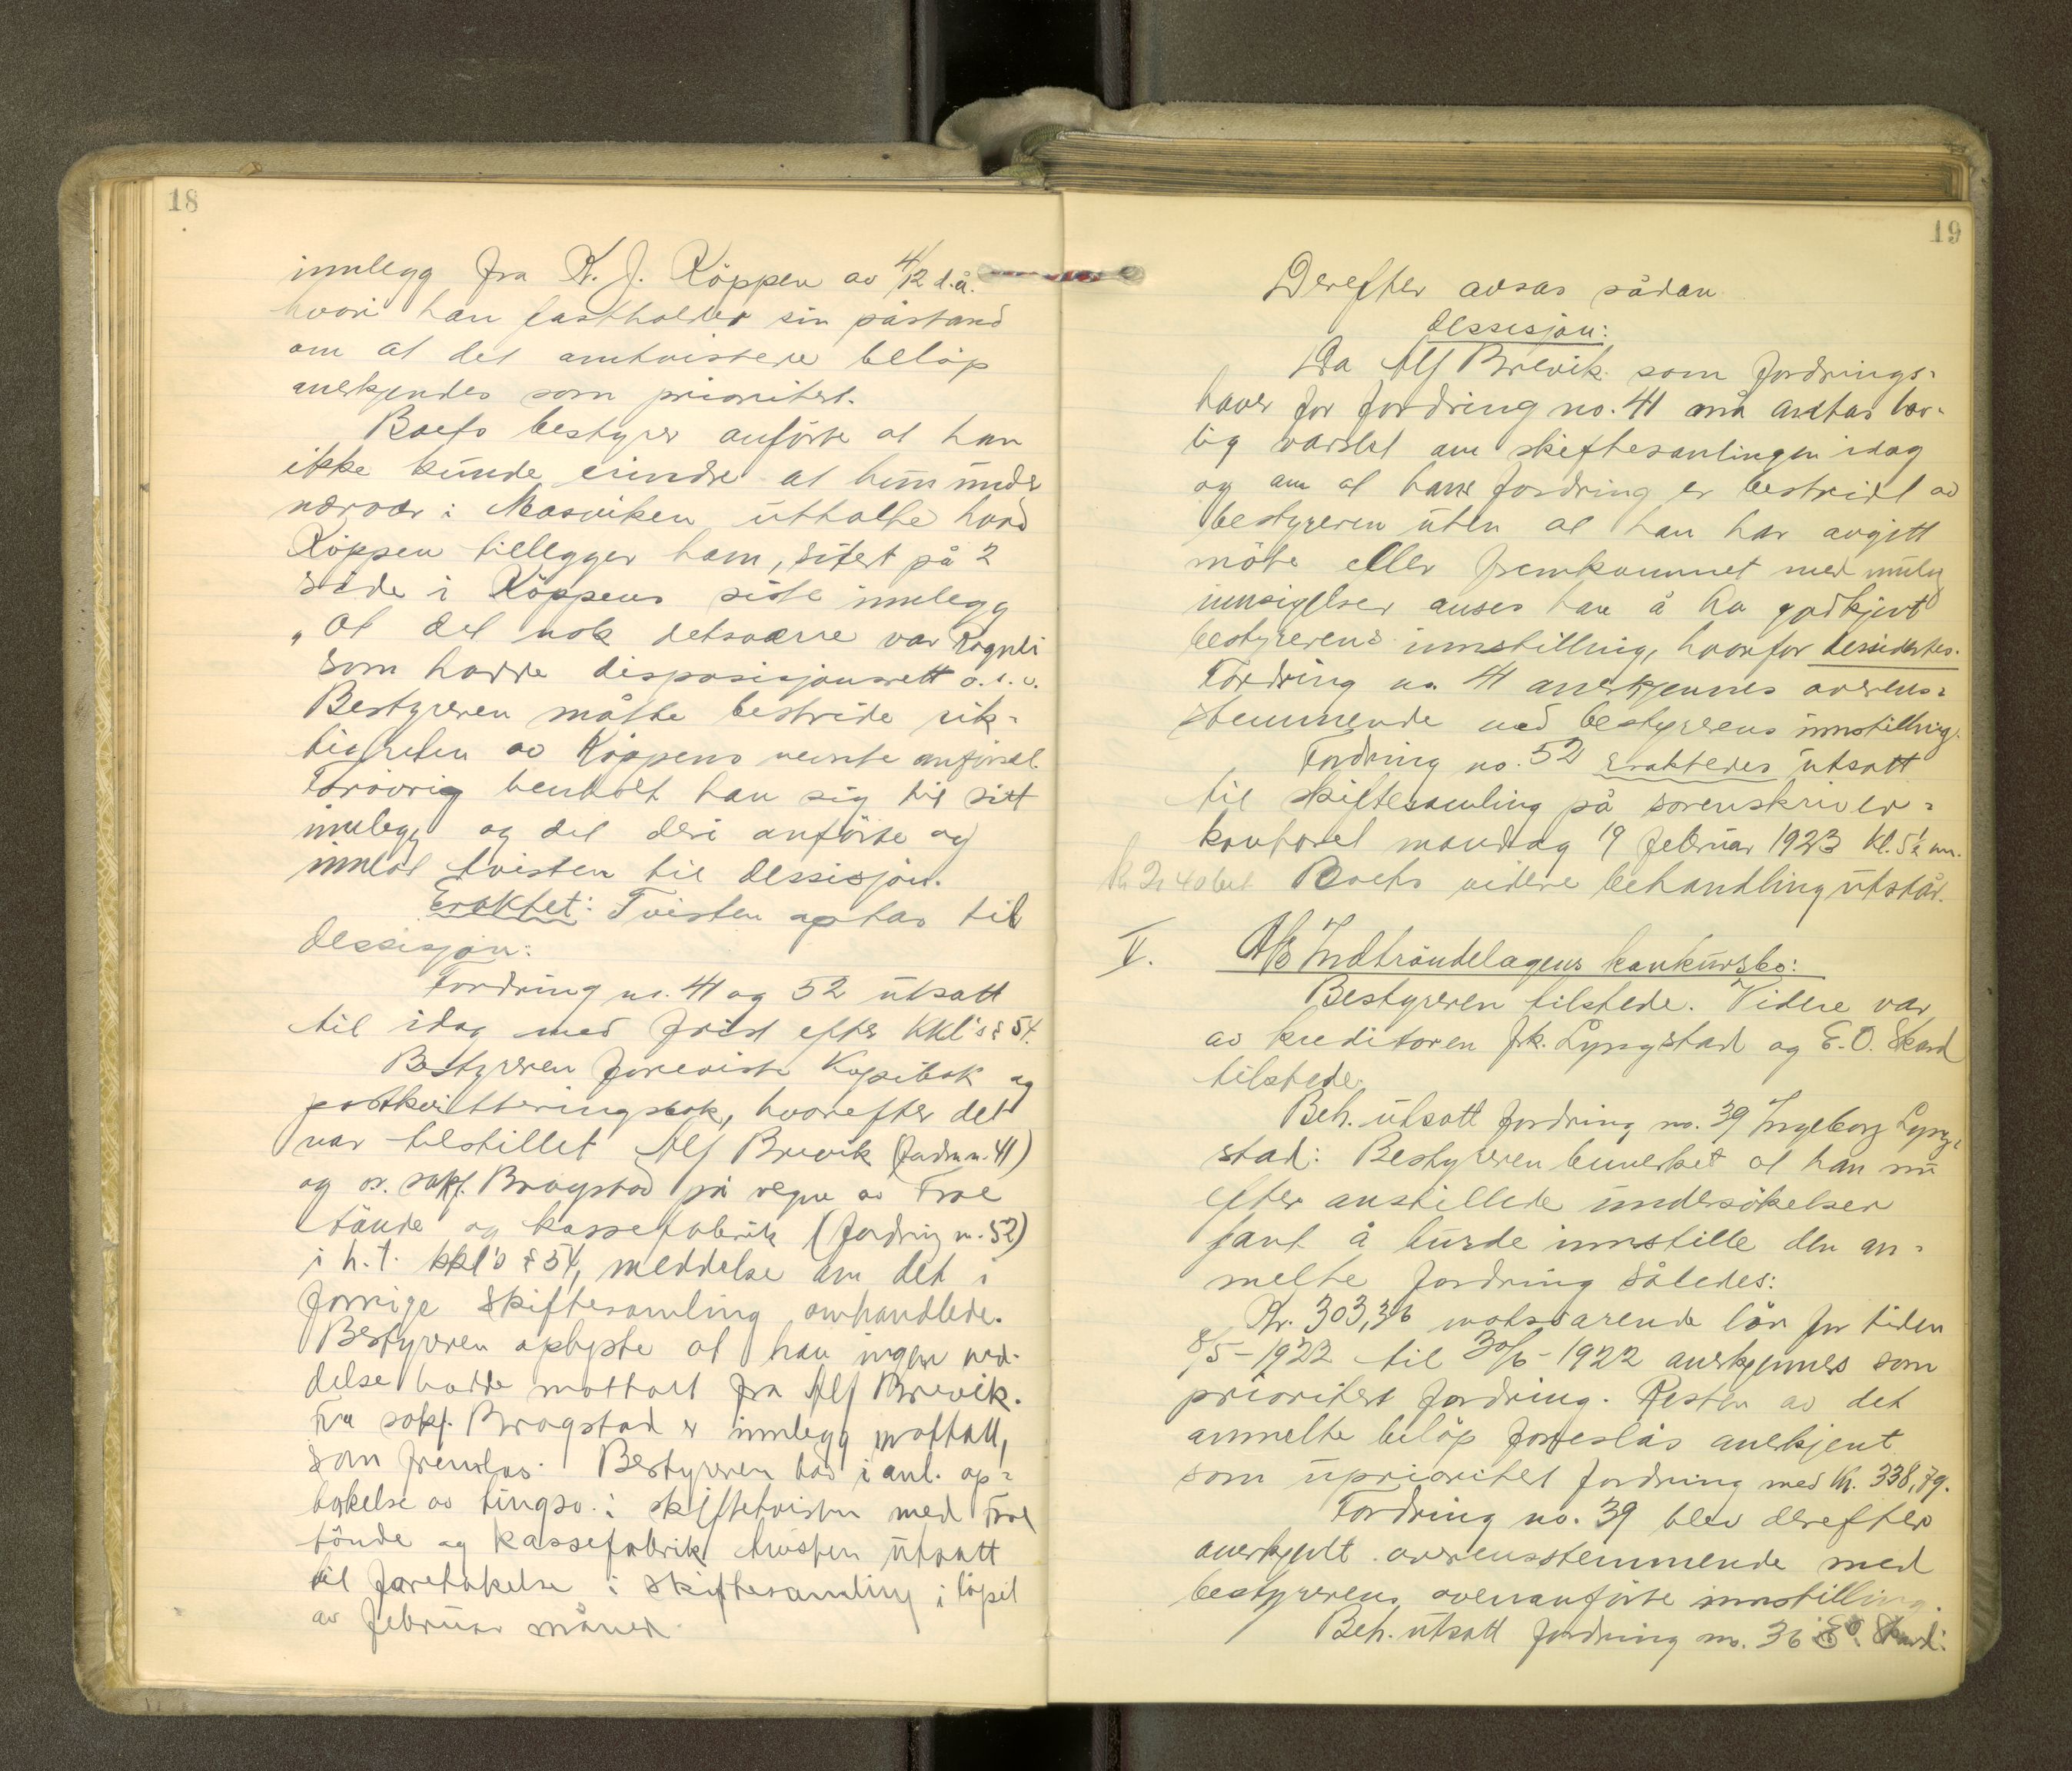 18
innlegg fra K. J. Köppen av 4/12 d.å.
hvori han fastholder sin påstand
om at det omtvistede beløp
anerkjendes som prioritert.
Boets bestyrer anförte at han
ikke kunde erindre at hun under
nærvær i Masviken uttalte hvad
Köppen tillegger ham, sitert på 2
side i Köppens siste innlegg
„At det nok detsværre var
som hadde disposisjonsrett o.s.v.
Bestyreren måtte bestride rik-
tigheten av Köppens nevnte anförsel.
Forövrig henholt han sig til sitt
innlegg og det deri anförte og
innlot tvisten til dessisjon.
Eraktet: Tvisten optas til
dessisjon:
Fordring no. 41 og 52 utsatt
til idag med frist efter kkl's § 54.
Bestyreren foreviste Kopibok og
postkvitteringsbok, hvorefter det
var tilstillet Alf Brevik (fordr. no. 41)
og or. sakf. Bragstad på vegne av Frol
tönde og kassefabrik (fordring no. 52)
i h.t. kkl's § 54, meddelse om det i
forrige skiftesamling omhandlede.
Bestyreren oplyste at han ingen med-
delse hadde mottatt fra Alf Brevik.
Fra sakf. Bragstad er innlegg mottatt,
som fremlas. Bestyreren bad i anl. op-
takelse av tingsv. i skiftetvisten med Frol
tönde og kassefabrik tvisten utsatt
til foretakelse i skiftesamling i löpet
av februar måned.
19
Derefter avsas sådan
dessisjon:
Da Alf Brevik som fordrings-
haver for fordring no. 41 må antas lov-
lig varslet om skiftesamlingen idag
og om at hans fordring er bestridt av
bestyreren uten at han har avgitt
möte eller fremkommet med mulig
innsigelser anses han å ha godkjent
bestyrerens innstilling, hvorfor dessidertes.
Fordring no. 41 anerkjennes overens-
stemmende med bestyrerens innstilling.
Fordring no. 52 eraktedes utsatt
til skiftesamling på sorenskriver-
kontoret mandag 19 februar 1923 kl. 5½ em.
Kr 2,40 bet Boets videre behandling utstår.
V. A/S Indtröndelagens konkursbo:
Bestyreren tilstede. Videre var
av kreditoren frk. Lyngstad og E.O. Skard
tilstede.
Beh. utsatt fordring no. 39 Ingeborg Lyng-
stad: Bestyreren bemerket at han nu
efter anstillede undersökelser
fant å burde innstille den an-
melte fordring således:
Kr. 303,36 motsvarende lön for tiden
8/5-1922 til 30/6-1922 anerkjennes som
prioritert fordring. Resten av det
anmelte belöp foreslås anerkjent
som uprioritert fordring med Kr. 338,79.
Fordring no. 39 blev derefter
anerkjent overensstemmende med
bestyrerens ovenanförte innstilling.
Beh. utsatt fordring no. 36 E.O. Skard: